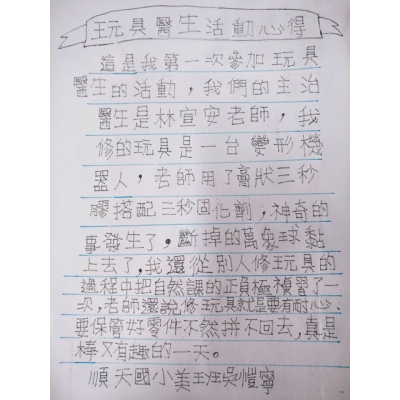 玩具醫生活動心得
這是我第一次參加玩具
醫生的活動，我們的主治
醫生是林宣安老師，我
修的玩具是一台變形機
器人，老師用了膏狀三秒
膠搭配三秒固化劑，神奇的
事發生了，斷掉的萬象球黏
上去了，我還從別人修玩具的
過程中把自然課的正負極複習了一
次，老師還說，修玩具就是要有耐心、
要保管好零件不然拼不回去，真是
棒又有趣的一天。
順天國小美班汪吳愷寧